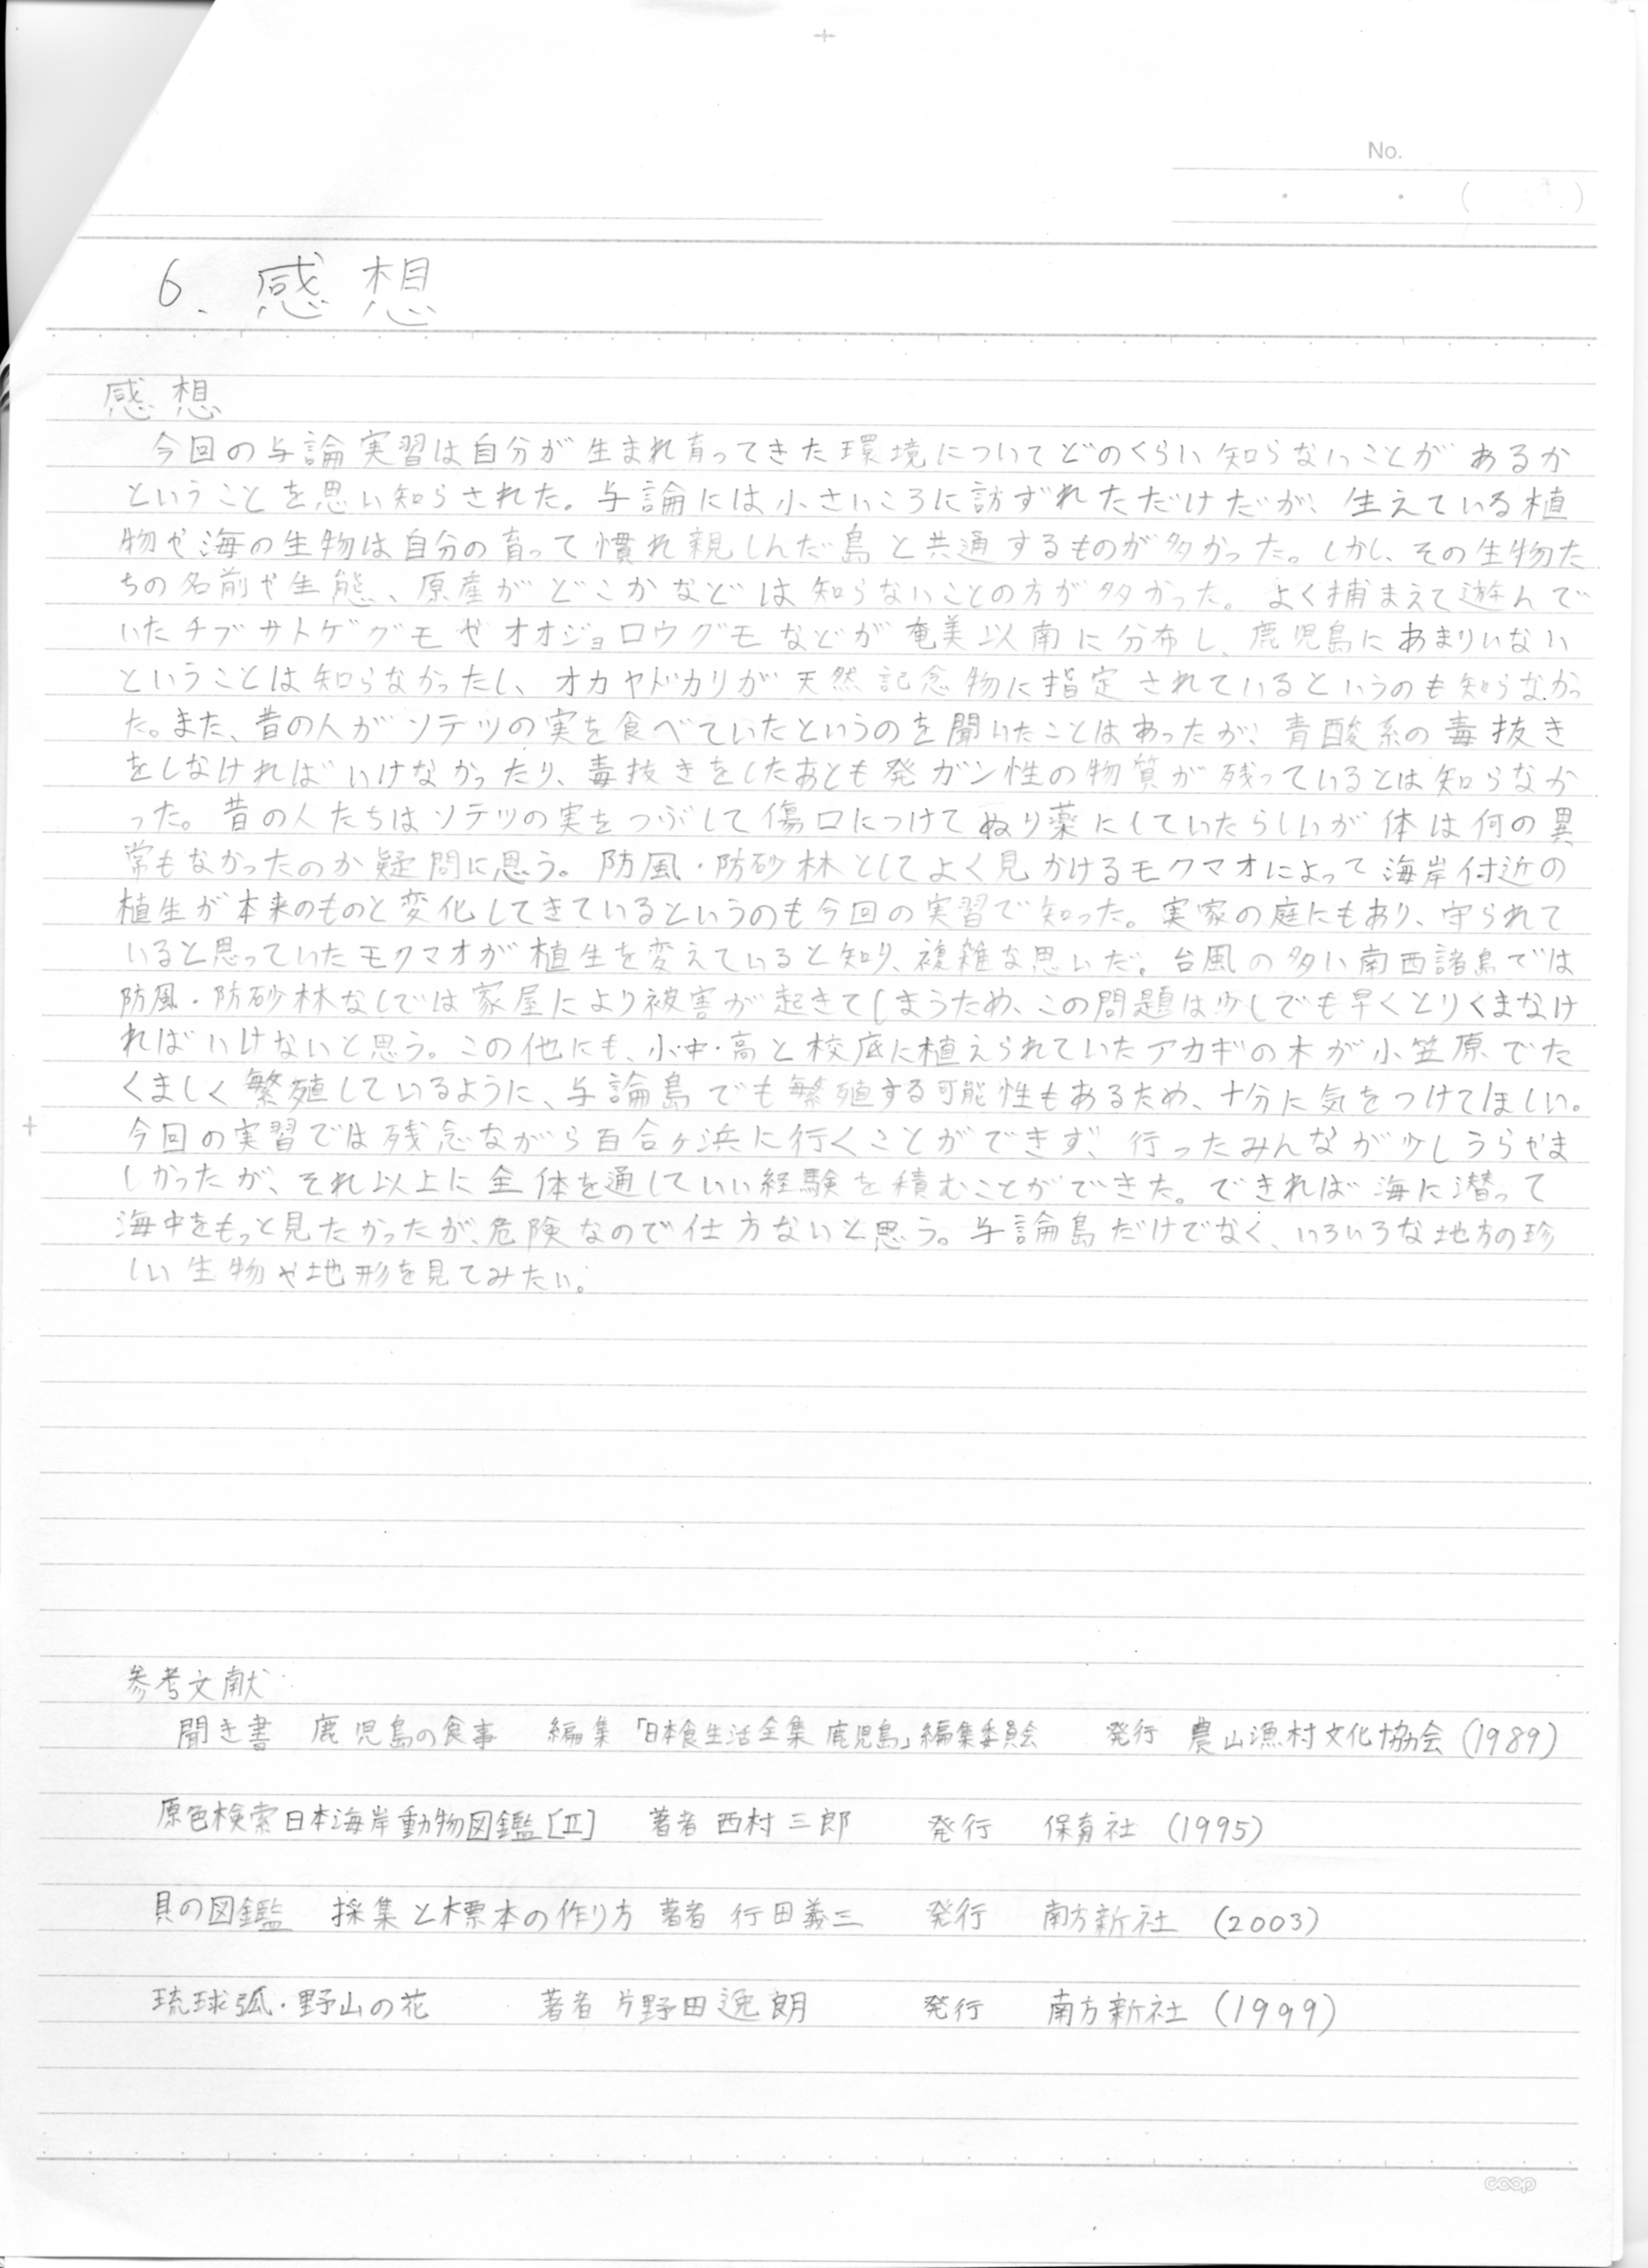 No.
6. 感想
感想
今回の与論実習は自分が生まれ育ってきた環境についてどのくらい知らないことがあるか
ということを思い知らされた。与論には小さいころに訪ずれただけだが、生えている植
物や海の生物は自分の育って慣れ親しんだ島と共通するものが多かった。しかし、その生物た
ちの名前や生態、原産がどこかなどは知らないことの方が多かった。よく捕まえて遊んで
いたチブサトゲグモやオオジョロウグモなどが奄美以南に分布し、鹿児島にあまりいない
ということは知らなかったし、オカヤドカリが天然記念物に指定されているというのも知らなかっ
た。また、昔の人がソテツの実を食べていたというのを聞いたことはあったが、青酸系の毒抜き
をしなければいけなかったり、毒抜きをしたあとも発ガン性の物質が残っているとは知らなか
った。昔の人たちはソテツの実をつぶして傷口につけてぬり薬にしていたらしいが体は何の異
常もなかったのか疑問に思う。防風・防砂林としてよく見かけるモクマオによって海岸付近の
植生が本来のものと変化してきているというのも今回の実習で知った。実家の庭にもあり、守られて
いると思っていたモクマオが植生を変えていると知り、複雑な思いだ。台風の多い南西諸島では
防風・防砂林なしでは家屋により被害が起きてしまうため、この問題は少しでも早くとりくまなけ
ればいけないと思う。この他にも、小・中・高と校庭に植えられていたアカギの木が小笠原でた
くましく繁殖しているように、与論島でも繁殖する可能性もあるため、十分に気をつけてほしい。
今回の実習では残念ながら百合ヶ浜に行くことができず、行ったみんなが少しうらやま
しかったが、それ以上に全体を通していい経験を積むことができた。できれば海に潜って
海中をもっと見たかったが、危険なので仕方ないと思う。与論島だけでなく、いろいろな地方の珍
しい生物や地形を見てみたい。
参考文献
聞き書 鹿児島の食事 編集「日本食生活全集 鹿児島」編集委員会 発行 農山漁村文化協会 (1989)
原色検索日本海岸動物図鑑[Ⅱ] 著者 西村三郎 発行 保育社 (1995)
貝の図鑑 採集と標本の作り方 著者 行田義三 発行 南方新社 (2003)
琉球弧・野山の花 著者 片野田逸朗 発行 南方新社 (1999)
coop